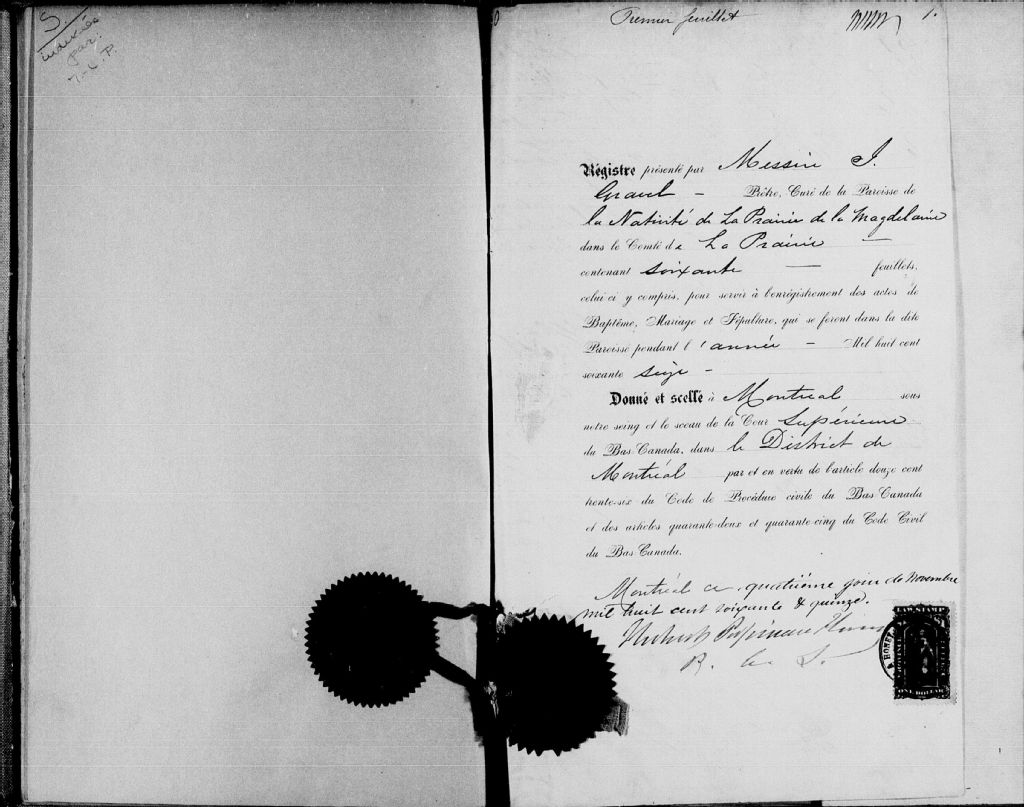 S.
indexée
par:
T.-L.P.
Premier feuillet
1.
Régistre présenté par Messire I.
Gravel – Prêtre, Curé de la Paroisse de
la Nativité de La Prairie de la Magdelaine
dans le Comté de La Prairie —
contenant soixante — feuillets,
celui-ci y compris, pour servir à l'enrégistrement des actes de
Baptême, Mariage et Sépulture, qui se feront dans la dite
Paroisse pendant l'année – Mil huit cent
soixante seize –
Donné et scellé à Montréal sous
notre seing et le sceau de la Cour Supérieure
du Bas-Canada, dans le District de
Montréal par et en vertu de l'article douze cent
trente-six du Code de Procédure civile du Bas-Canada
et des articles quarante-deux et quarante-cinq du Code Civil
du Bas-Canada.
Montréal ce quatrième jour de Novembre
mil huit cent soixante & quinze.
Hubert Papineau Honey
LAW STAMP
ONE DOLLAR